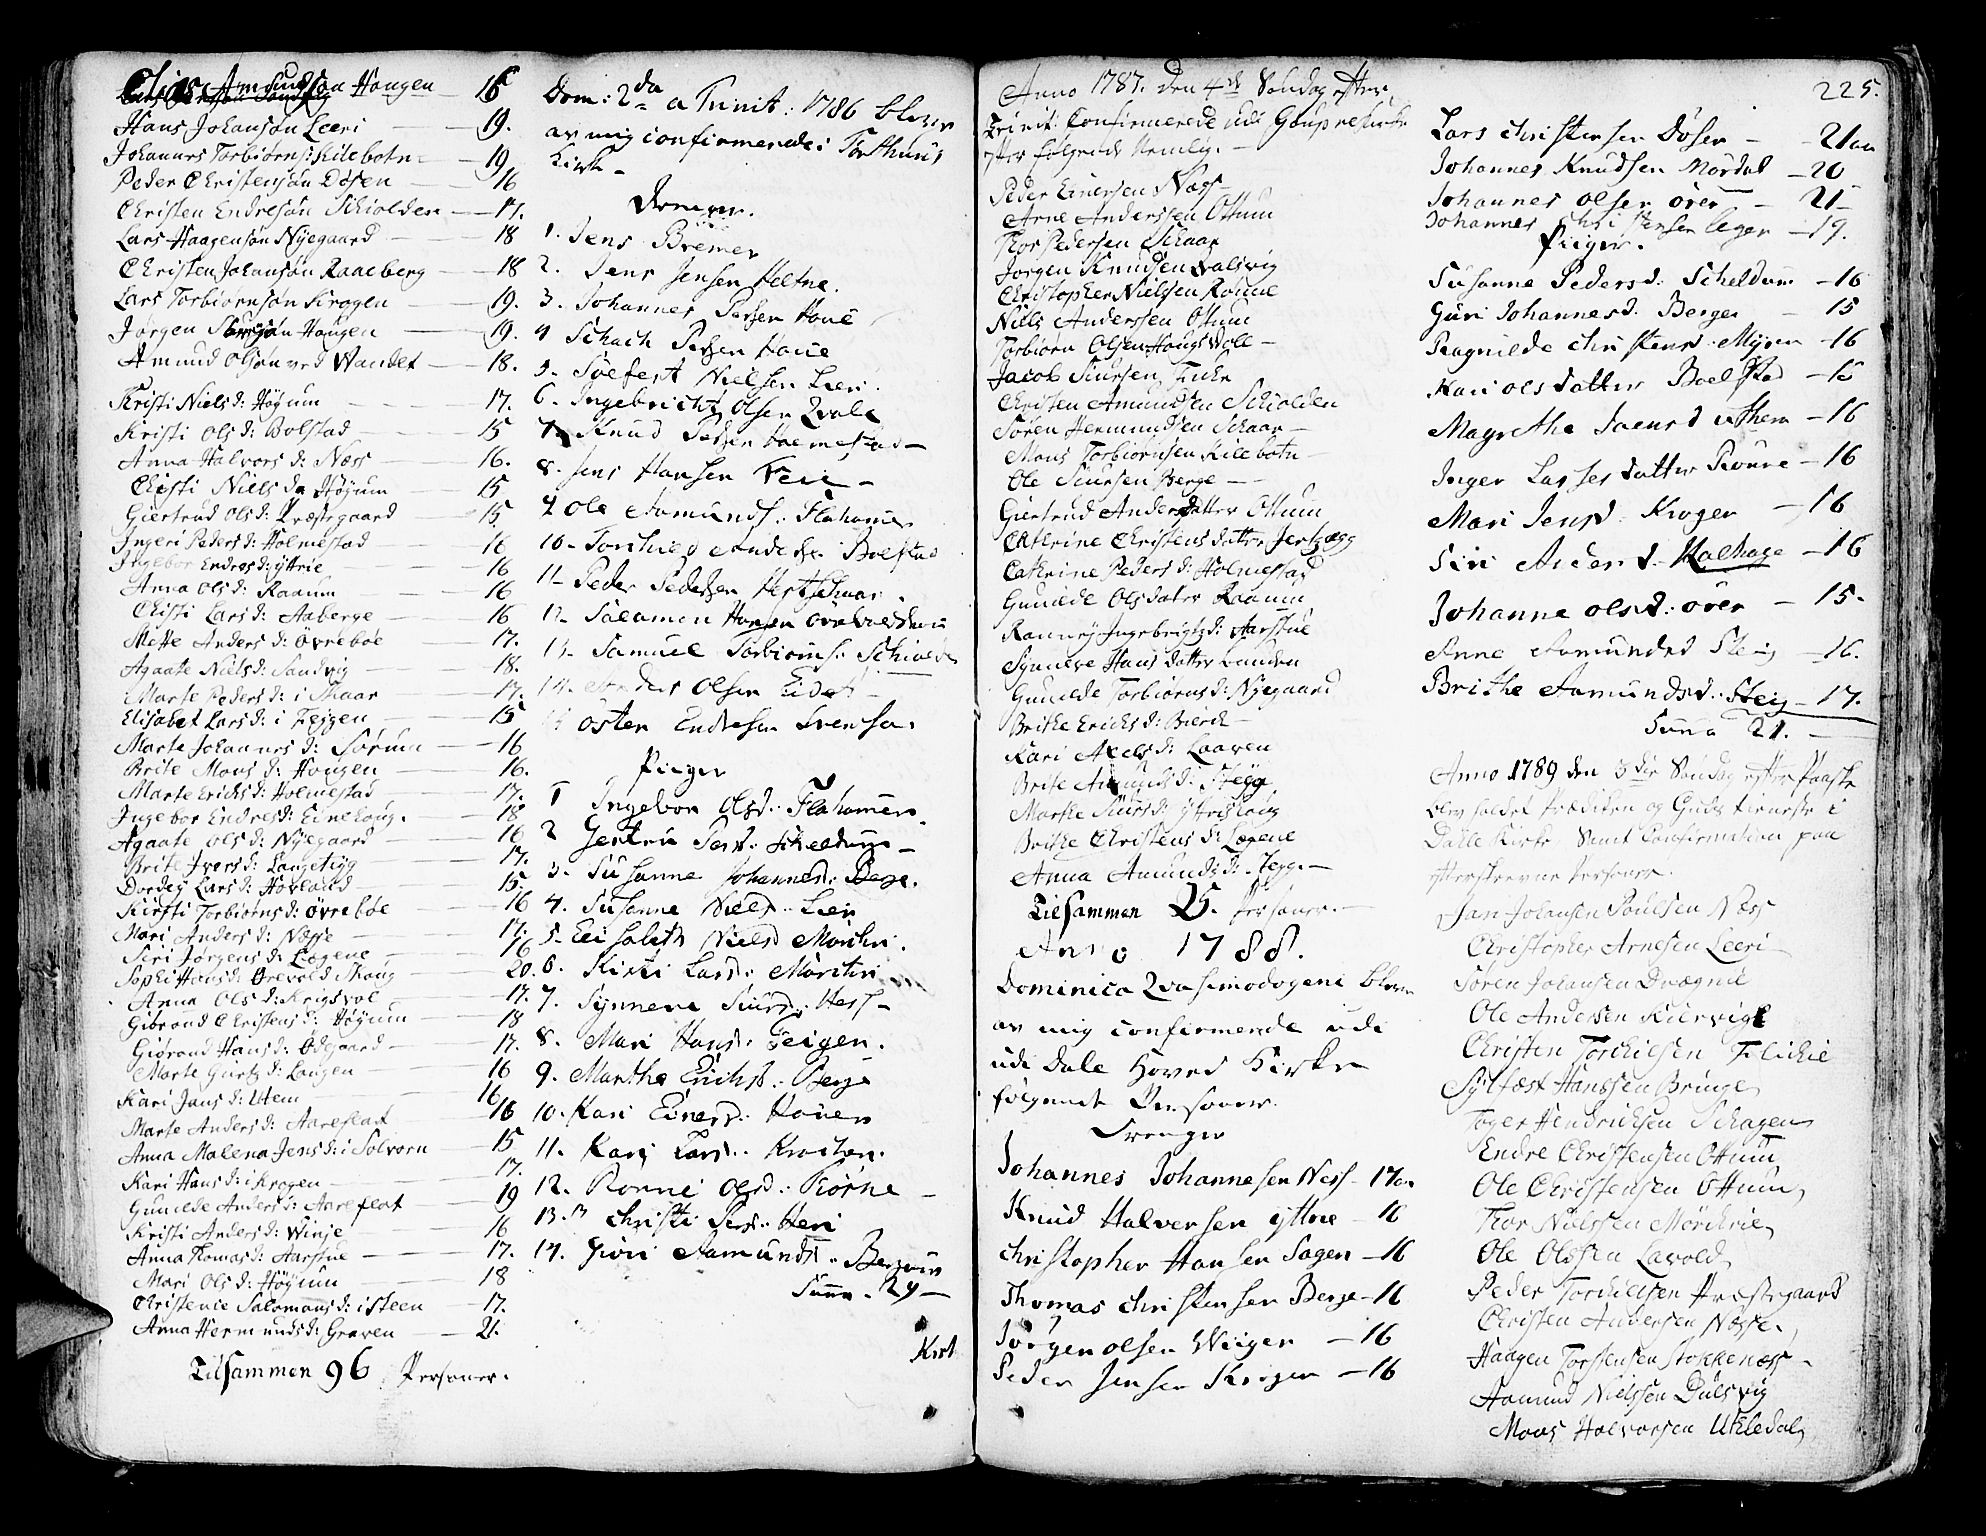 Elias Amundsøn Haugen — 16
Hans Johansøn Leeri — 19.
Johannes Torbiørns: Kilebotn — 19
Peder Christensøn Døsen — 16
Christen Endresøn Skiolden — 17.
Lars Haagensøn Nyegaard — 18
Christen Johansøn Raaeberg — 18
Lars Torbiørnsøn Krogen — 19.
Jørgen Haugen — 19.
Amund Olsøn ved Vandet — 18.
Kristi Niels d: Høÿum — 17.
Kristi Ols d: Bolstad — 15
Anna Halvors d: Næss — 16.
Christi Niels da Høÿum — 15
Giertrud Ols d: Præstegaard — 15.
Ingeri Peders d: Holmestad — 16
Ingebor Endres d: ÿttrie — 16
Anna Ols d: Raaum — 16
Christi Lars d: Aaberge — 16
Mette Anders d: Øvrebøe — 17.
Agaate Niels d: Sandvig — 18.
Marte Peders d: i Skaar — 17.
Elisabet Lars d: i Feÿgen — 15
Marte Johannes d: Sørum — 16
Brite Mons d: Haugen — 16.
Marte Erichs d: Holmestad — 17.
Ingebor Endres d: — 18
Agaate Ols d: Nÿegaard — 16
Brite Ivers d: Langeteÿg — 17.
Dordeÿ Lars d: Hovland — 15.
Kirsti Torbiørns d: Øvrebøe — 16
Mari Anders d: Næsse — 17.
Siri Jørgens d: Lægene — 16
Sophi Hans d: — 20.
Anna Ols d: Krigsvol — 17.
Gibrand Christens d: Høÿum — 18
Giørand Hans d: Ødegaard — 17.
Marte Giurts d: Laugen — 16
Kari Jans d: Utem — 16
Marte Anders d: Aareflat — 16
Anna Malena Jens d: i Solvorn — 15
Kari Hans d: i Krogen — 17.
Gunilde Anders d: Aareflat — 19
Kristi Anders d: Winje — 16
Anna Thomas d: Aarstue — 17.
Mari Ols d: Høÿum — 18
Christenie Salomons d: i Steen — 17.
Anna Hermunds d: Graven — 21.
Tilsammen 96 Personer.
Dom: 2da a Trinit: 1786 bleven
av mig confirmerede i Torthuus
Kirke —
Drenger.
1. Jens Bremer
2. Jens Jensen Heltne.
3. Johannes Persen Houe
4 Schach Persen Houe
5. Søefest Nielsen Lien.
6. Ingebricht Olsen Qvale
7. Knud Persen Holmestad —
8. Jens Hansen Feie —
9 Ole Aamunds: Flahamer
10. Torchild Anders: Bolstad
11. Peder Pedersen
12. Salamon Hansen
13. Samuel Torbiørns: Schiolde
14. Anders Olsen Eide
Østen Endresen Svensøe.
Piiger
1 Ingebor Olsd: Flahamer.
2 Gertru Persd: Scheldum —
3. Susanne Johannesd: Berge.
4. Susanne Nielsd: Lien
5. Elisabeth Nielsd Mørchri.
6. Kirsti Larsd: Mørchri.
7. Sÿnneve Siursd: Hess —
8. Mari Hansd: Feigen.
9. Marthe Erichsd: Berge
10. Kari Einersd: Houen
11. Kari Larsd: Krochen.
12. Ronni Olsd: Rørne —
13. Christi Persd: Heri
14. Giøri Aamundsd:
Suma. 29 —
Kirk
225.
Anno 1787. den 4de Søndag efter
Trinit: Confirmerede udi Gaupne Kirke
efter følgende Nemlig. —
Peder Einersen Næss
Arne Anderssen Ottum
Thor Pedersen Skaar
Jørgen Knudsen Dalsvig
Christopher Nielsen Roune
Niels Anderssen Ottum
Torbiørn Olsen Haugsvoll —
Jacob Siursen Feche
Christen Amundsen Schiolden
Søren Hermundsen Schaar —
Mons Torbiørnsen Kilebotn —
Ole Siursen Berge —
Giertrud Andersdatter Ottum
Cathrine Christens datter
Cathrine Peders d: Holmestad
Gunilde Ols datter Raaum
Ranneÿ Ingebrigts d: Aarstue
Sÿnneve Hans datter Landen
Gunilde Torbiørns d: Nÿegaard
Brithe Erichs d: Bierch —
Kari Axels d: Laaven
Brite Amunds d: Stegg
Marthe Siurs d:
Brithe Christens d: Lægene
Anna Amunds d: Stegg —
Tilsammen 25. Personer. —
Anno 1788.
Dominica Qvasimodogeni bleven
av mig confirmerede udi
udi Dale Hoved Kirke
følgende Personer.
Drenger
Johannes Johannesen Ness — 17 a.
Knud Halversen ÿttrie — 16
Christopher Hansen Sagen — 16
Thomas Christensen Berge — 16
Jørgen Olsen Wiigen — 16
Peder Jensen Krogen — 16
Lars Christensen Døsen — 21 aar
Johannes Knudsen Mordal — 20
Johannes Olsen ören — 21
Johannes Christensen legen — 19.
Piiger.
Susanne Pedersd: Scheldum — 16
Guri Johannesd. Bergen — 15
Ragnilde Christensd. Mÿren — 16
Kari Olsdatter Boelstad — 15
Magrethe Joensd uthem — 16
Inger Lassesdatter Roune — 16
Mari Jensd. Krogen — 16
Siri Andersd. — 16
Johanne Olsd: ören — 15.
Anne Aamundsd Steig — 16.
Brithe Aamundsd. Steig — 17.
Suma 21. —
Anno 1789 den 3die Søndag efter Paaske
blev holdet Prædiken og Guds tieneste i
Dahle Kirke, samt Confirmation paa
efterskrevne Personer.
Jan Johansen Poulsen Næss
Christopher Arnesen Leeri
Søren Johansen Drægnie
Ole Andersen Kiervig
Christen Torchilsen Flichie
Sÿlfæst Hanssen Bringe
Toger Hendrichsen Schagen
Endre Christensen Ottum
Ole Christensen Ottum,
Thor Nielssen Mörchrie,
Ole Olssen Lavold,
Peder Torchilsen Præstegaard
Christen Andersen Næsse,
Haagen Torstensen Stokkenæss.
Aamund Nielssøn Dulsvig
Mons Halvorsen Ukledal,